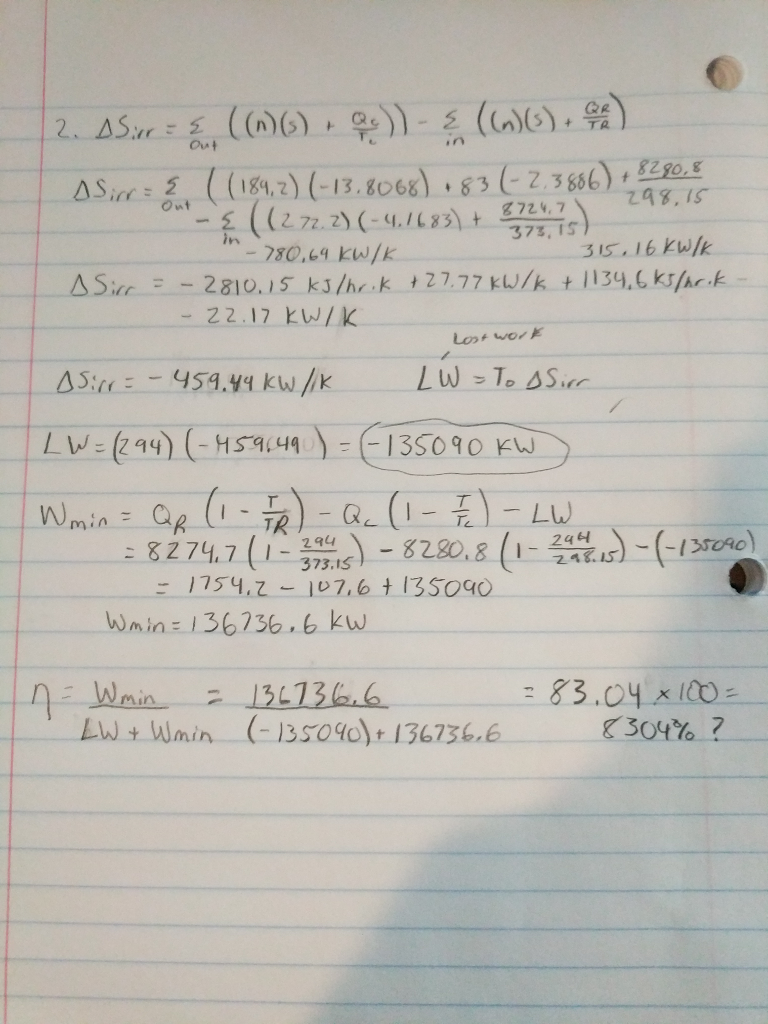 2. ΔSirr = Σ ((n)(s) + Qc/Tc)) - Σ ((n)(s) + QR/TR)
Out in
ΔSirr = Σ ((184.2)(-13.8068) + 83(-2.3886) + 8280.8/298.15
Out
- Σ ((272.2)(-4.1683) + 8724.7/373.15)
in
-780.64 KW/K 315.16 KW/K
ΔSirr = -2810.15 KJ/hr.K + 27.77 KW/K + 1134.6 KJ/hr.K -
- 22.17 KW/K
Lost work
ΔSirr = -459.49 KW/K LW = To ΔSirr
LW = (294)(-459.49) = -135090 KW
Wmin = QR (1 - T/TR) - Qc (1 - T/Tc) - LW
= 8274.7 (1 - 294/373.15) - 8280.8 (1 - 294/298.15) - (-135090)
= 1754.2 - 107.6 + 135090
Wmin = 136736.6 KW
η = Wmin/LW + Wmin = 136736.6/(-135090) + 136736.6 = 83.04 × 100 =
8304% ?